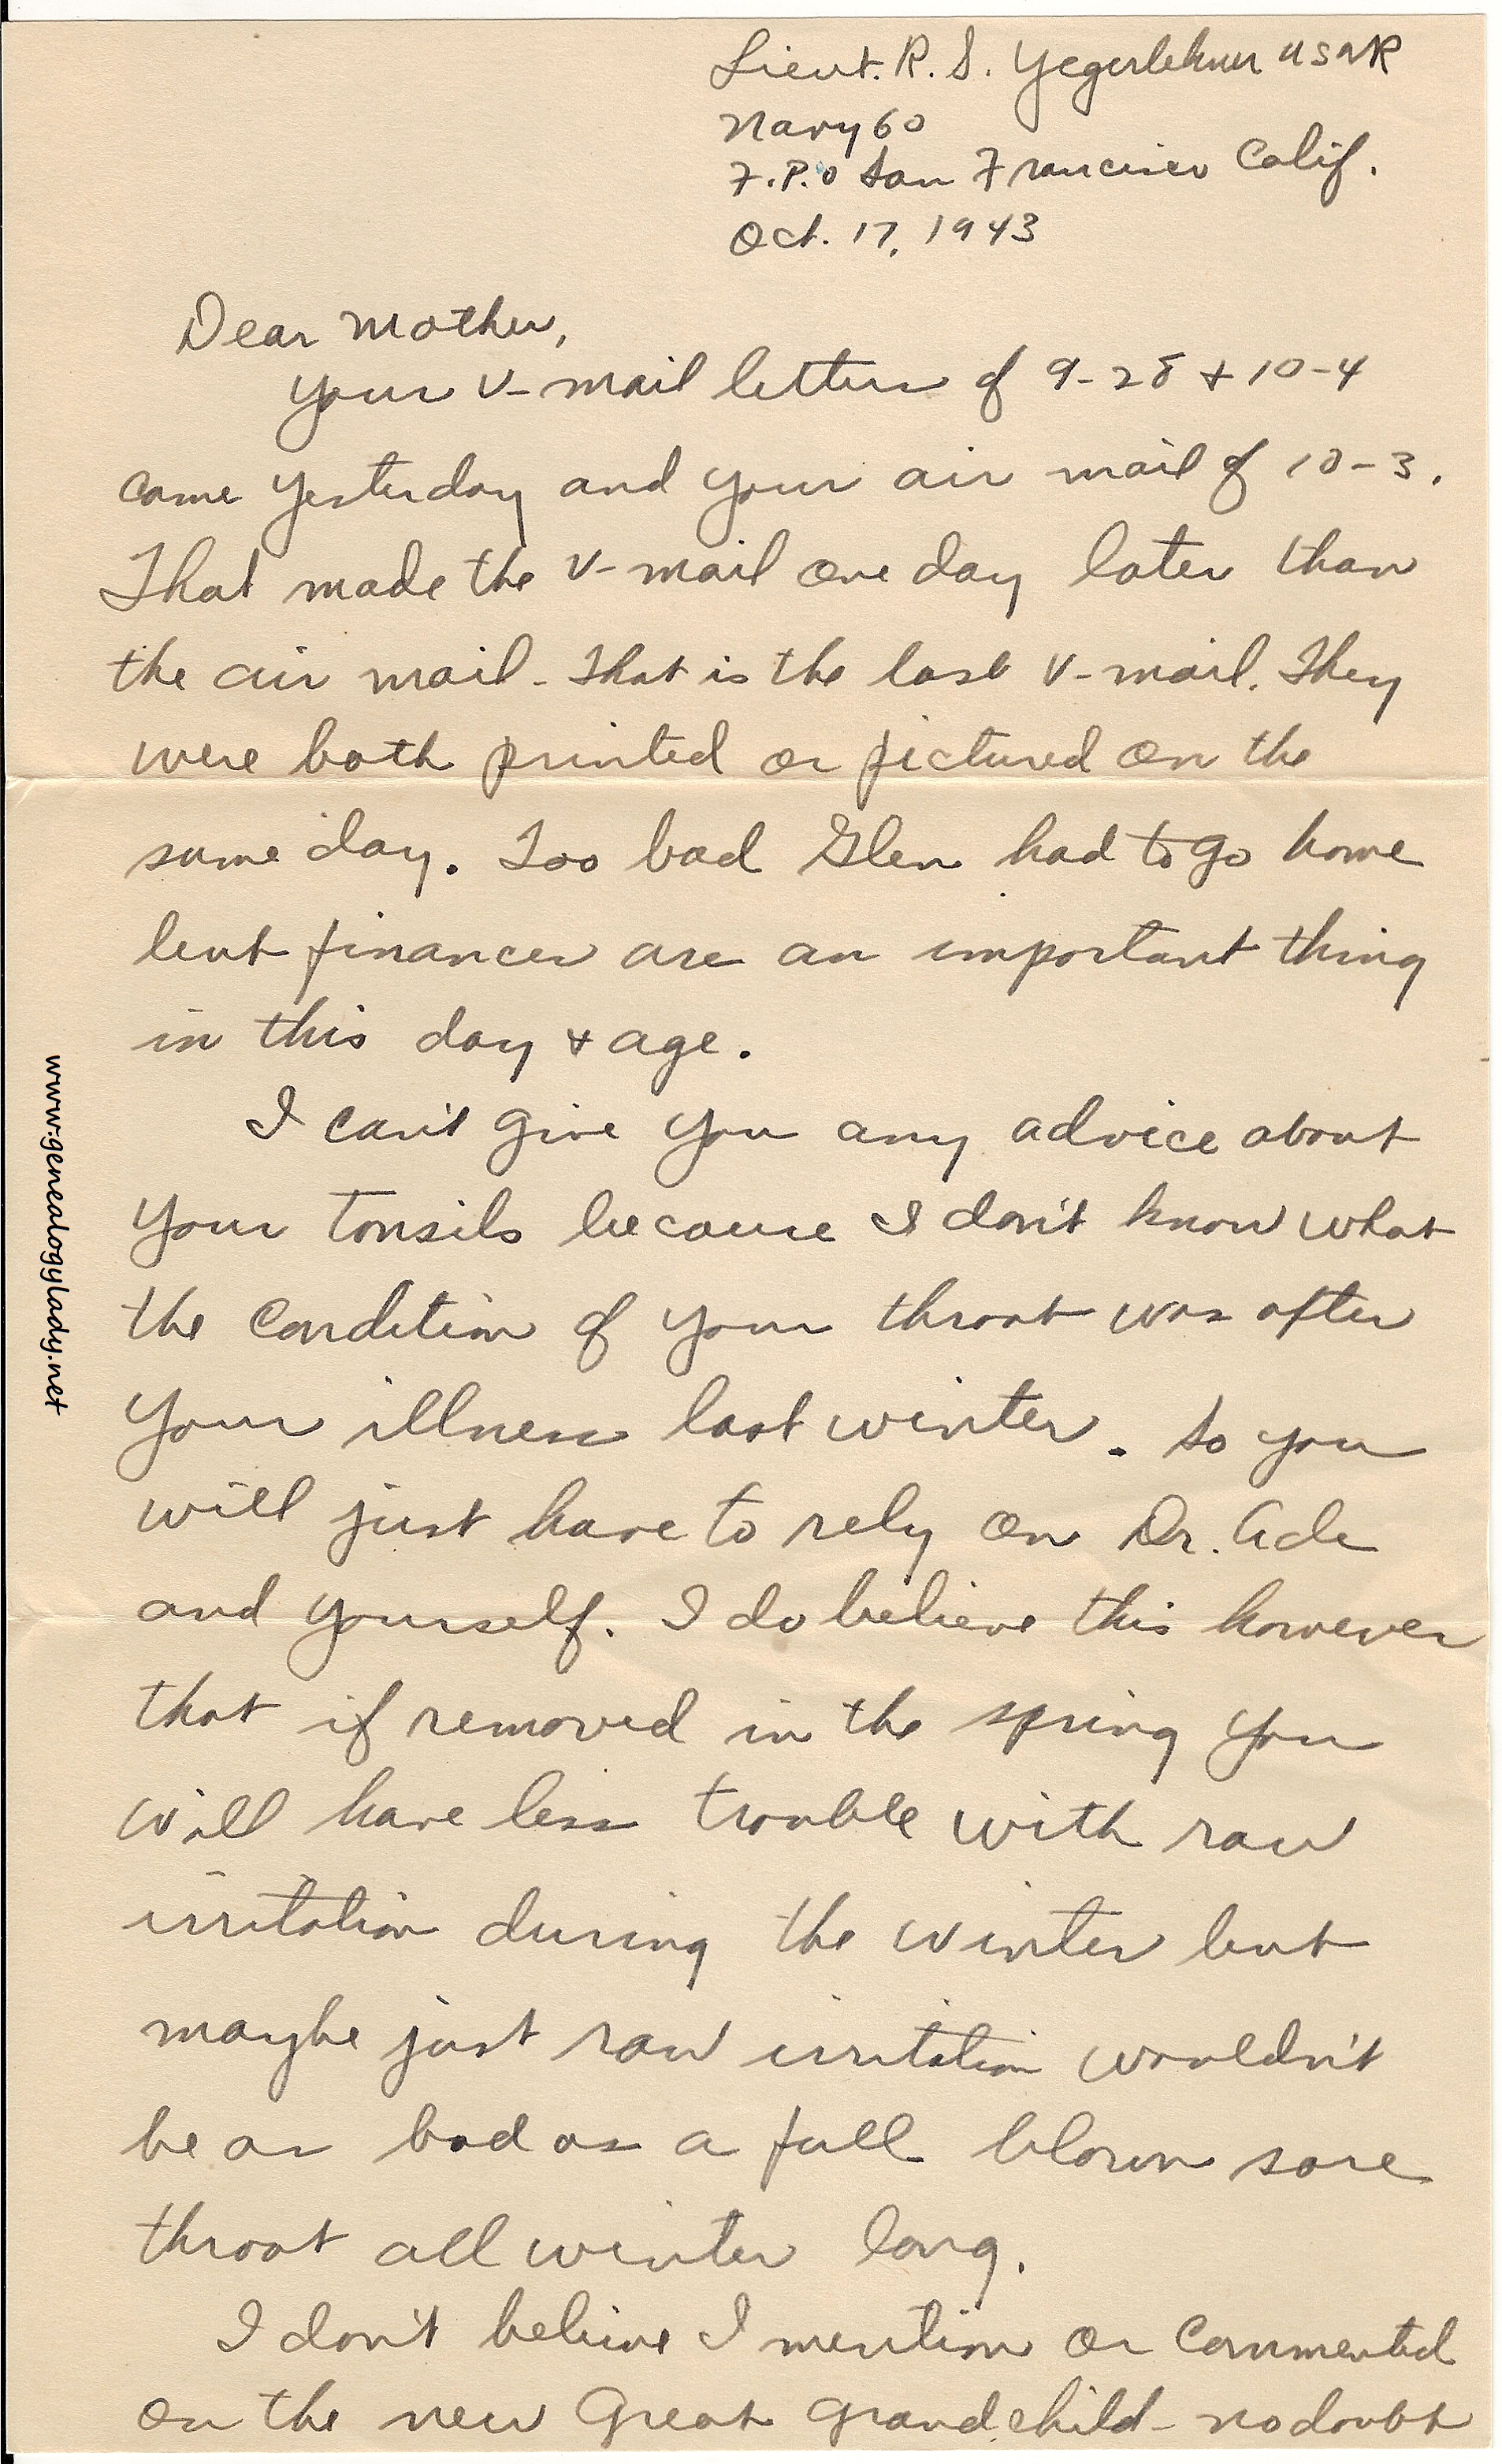 Lieut. R. S. Yegerlehner USNR
Navy 60
F.P.O San Francisco Calif.
Oct. 17, 1943
Dear Mother,
Your V-mail letters of 9-28 + 10-4
came yesterday and your air mail of 10-3.
That made the V-mail one day later than
the air mail - That is the last V-mail. They
were both printed or pictured on the
same day. Too bad Glen had to go home
but finances are an important thing
in this day + age.
I can't give you any advice about
your tonsils because I don't know what
the condition of your throat was after
your illness last winter. So you
will just have to rely on Dr. Ade
and yourself. I do believe this however
that if removed in the spring you
will have less trouble with raw
irritation during the winter but
maybe just raw irritation wouldn't
be as bad as a full blown sore
throat all winter long.
I don't believe I mention or commented
on the new Great grandchild - no doubt
www.genealogylady.net